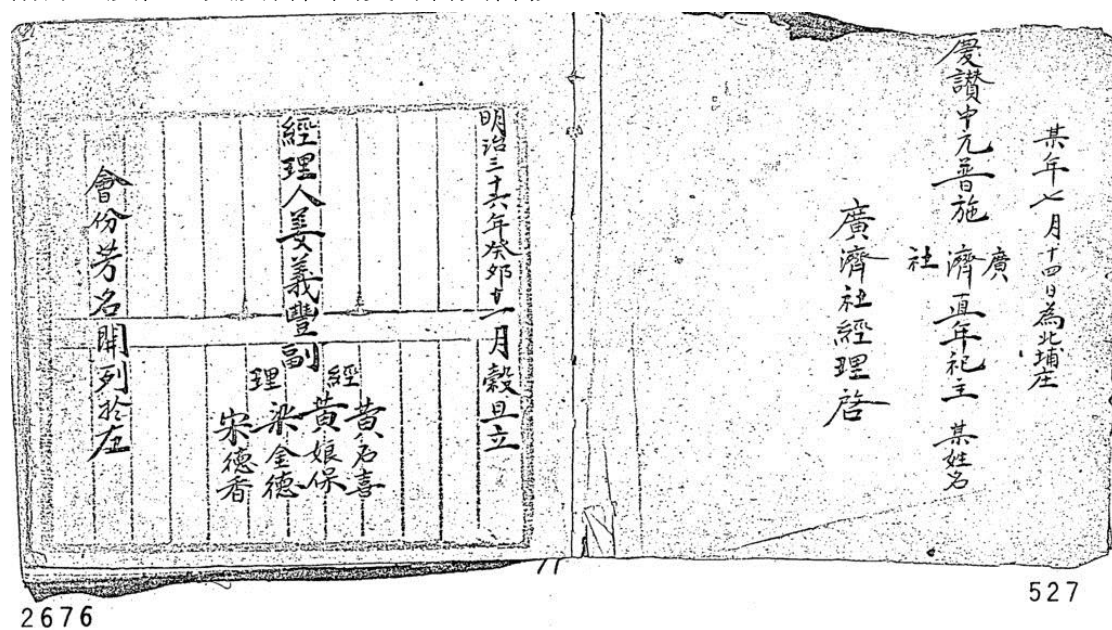 某年七月十四日為北埔庄
慶讚中元普施
廣濟社
直年祀主 某姓名
廣濟社經理啓
明治三十六年癸卯十一月穀旦立
經理人姜義豐副經理
黃石喜
黃娘保
梁金德
宋德香
會份芳名開列於左
2676
527